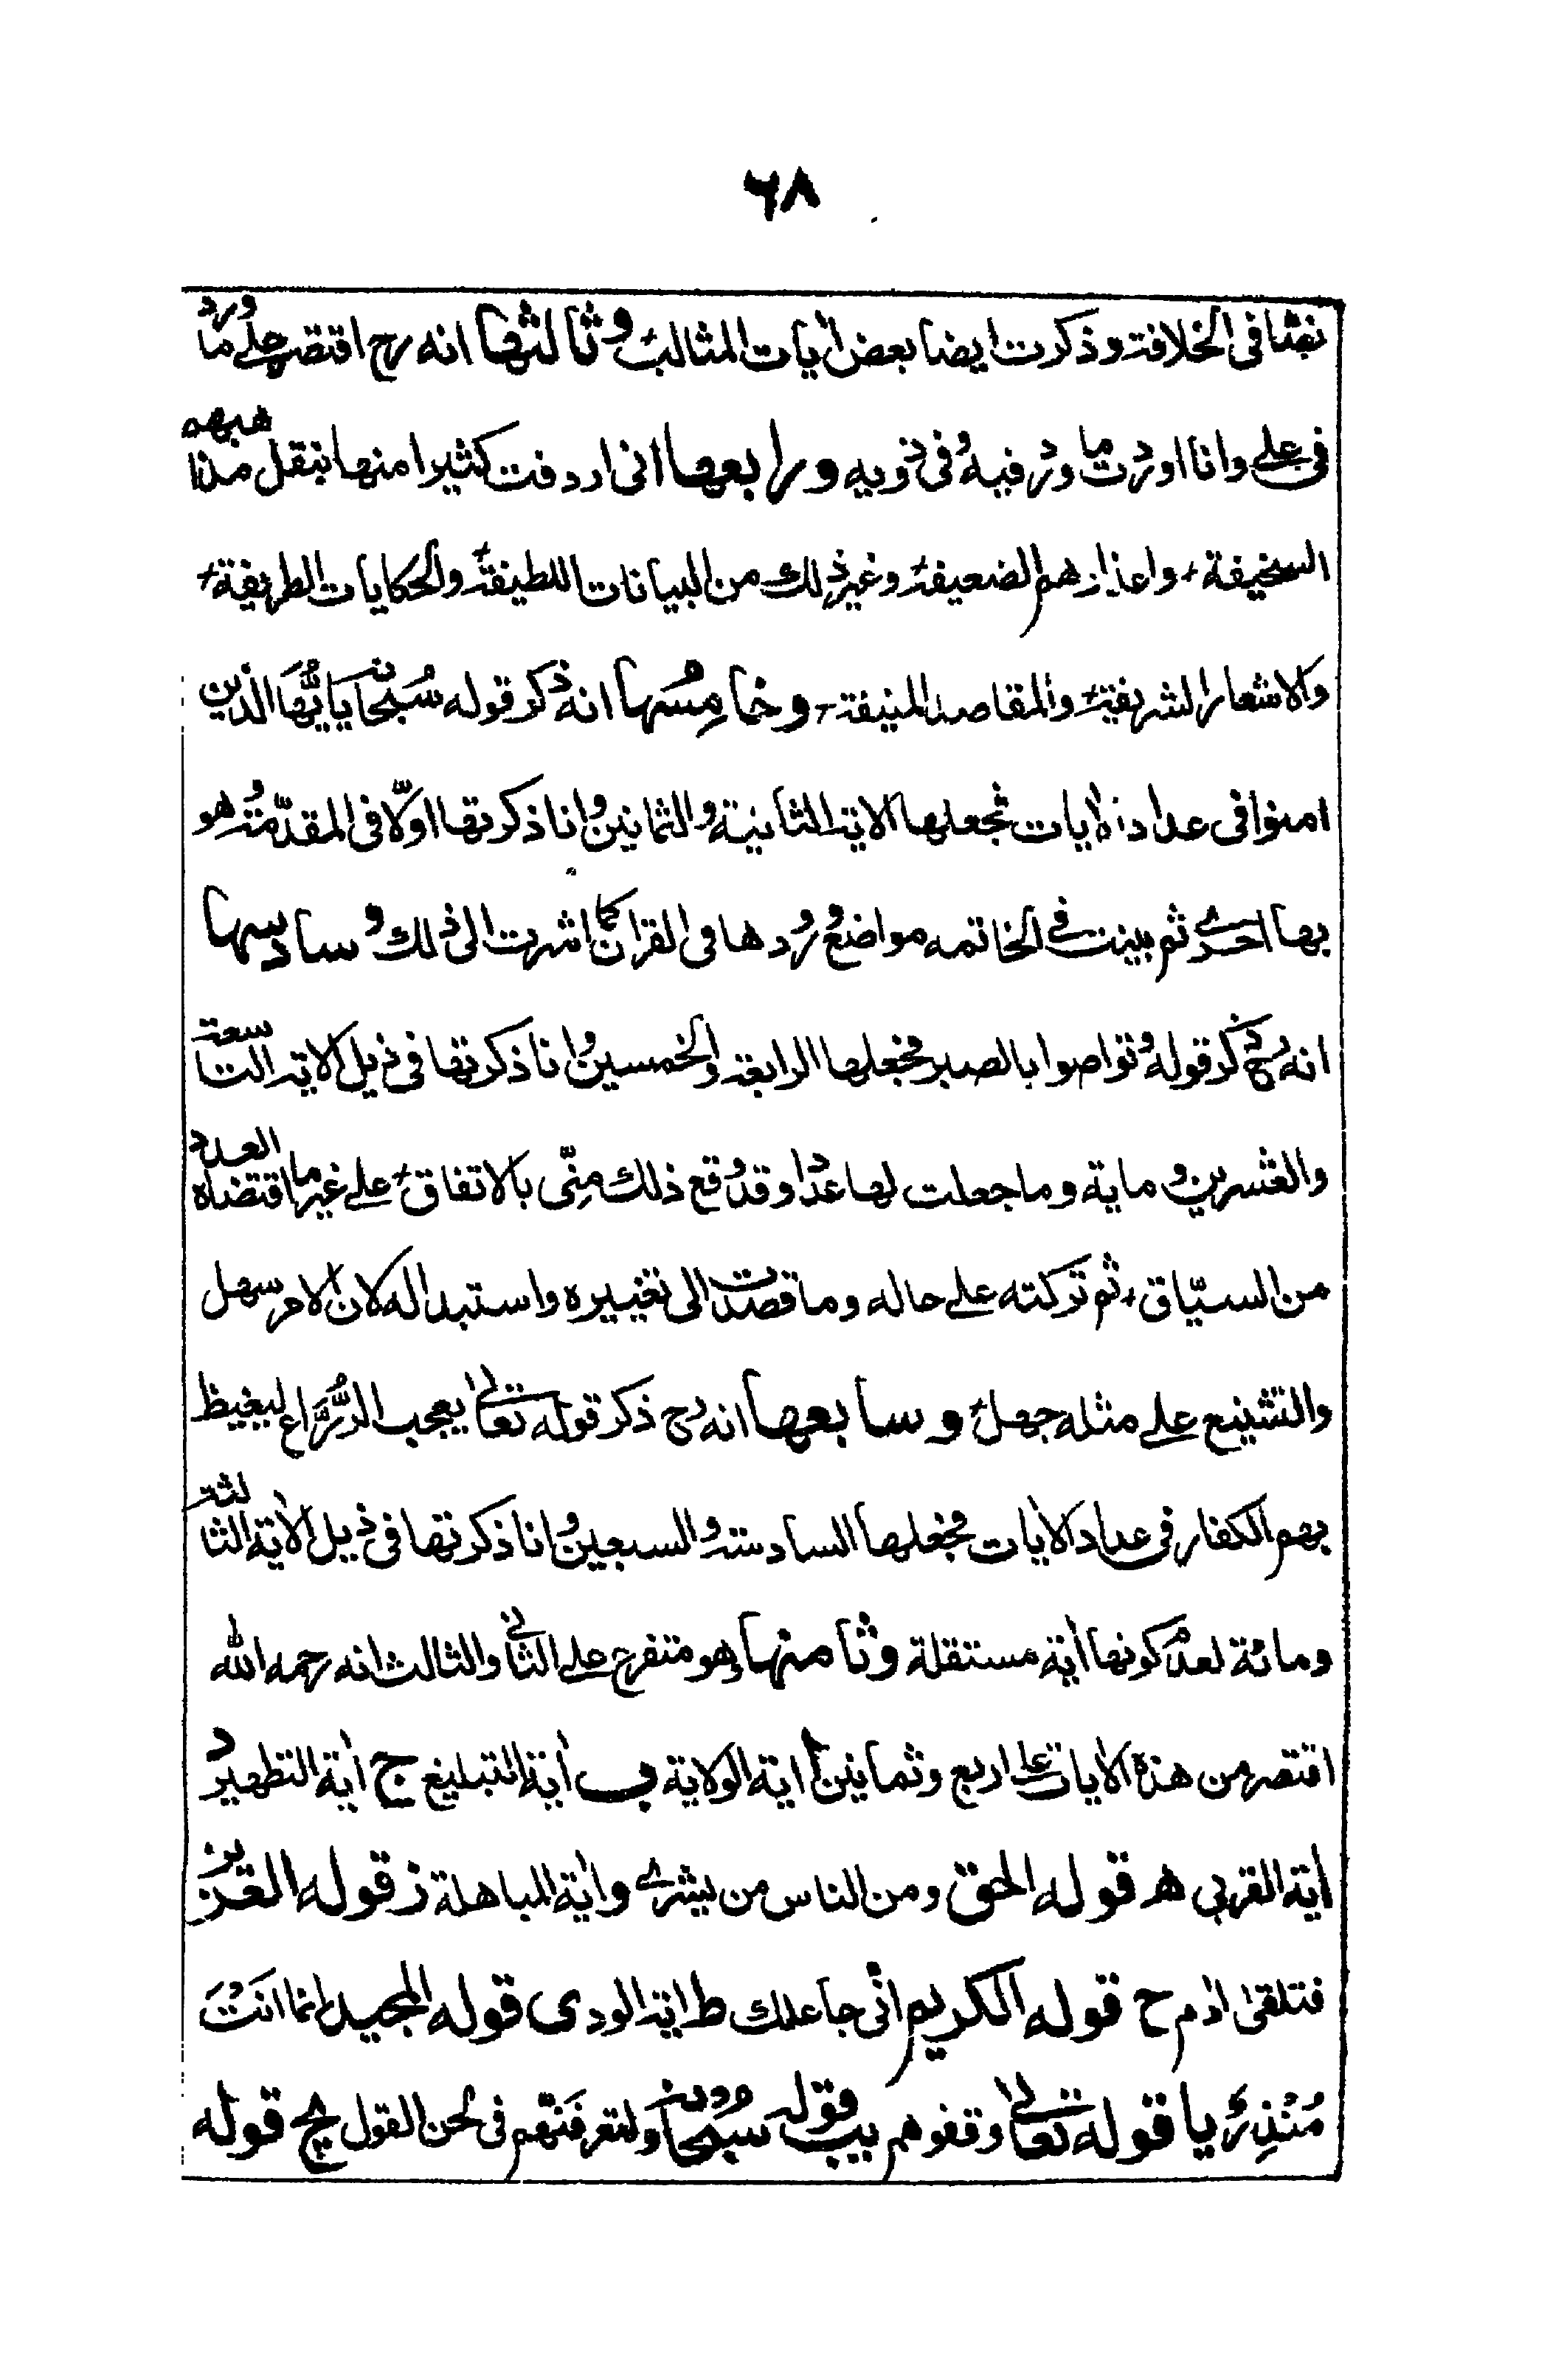 ٦٨
نصّا فى الخلافة وذكرت ايضا بعض ايات المثالب وثالثها انه رح اقتصر على ما ورد
فى على وانا اوردت ما ورد فيه وفى ذويه ورابعها انى اردفت كثيرا منها بنقل مذاهبهم
السخيفة واعذارهم الضعيفة وغير ذلك من البيانات اللطيفة والحكايات الطريفة
والاشعار الشريفة والمقاصد المنيفة وخامِسُها انه ذكر قوله سُبحانه يايُّهَا الذين
امنوا فى عداد الايات فجعلها الاية الثانية والثمانين وانا ذكرتها اوّلا فى المقدّمة وهو
بها احرى ثم بينت فى الخاتمه مواضع ورُدها فى القران كما اشرت الى ذلك وسادسها
انه رح ذكر قوله وتواصوا بالصبر فجعلها الرابعة والخمسين وانا ذكرتها فى ذيل الاية التاسعة
والعشرين وماية وما جعلت لها عددا وقد وقع ذلك منّى بالاتفاق على غير ما اقتضاه العدد
من السيّاق ثم تركته على حاله وما قصدت الى تغييره واستبداله لان الامر سهل
والتشنيع على مثله جهل وسابعها انه رح ذكر قوله تعالى يعجب الزُّرَّاع ليغيظ
بهم الكفار فى عداد الايات فجعلها السادسة والسبعين وانا ذكرتها فى ذيل الاية الثالثة
ومائة لعدم كونها اية مستقلة وثامنها وهو متفرع على الثانى والثالث انه رحمه الله
اقتصر من هذه الايات على اربع وثمانين ا اية الولاية ب اية التبليغ ج اية التطهير د
اية القربى ه قوله الحق ومن الناس من يشرى و اية المباهلة ز قوله العزيز
فتلقى ادم ح قوله الكريم انّى جاعلك ط اية الود ى قوله المجيد انما انتَ
مُنْذِرٌ يا قوله تعالى وقفوهم يب قوله سُبحانه ولتعرفَنّهم فى لحن القول يج قوله